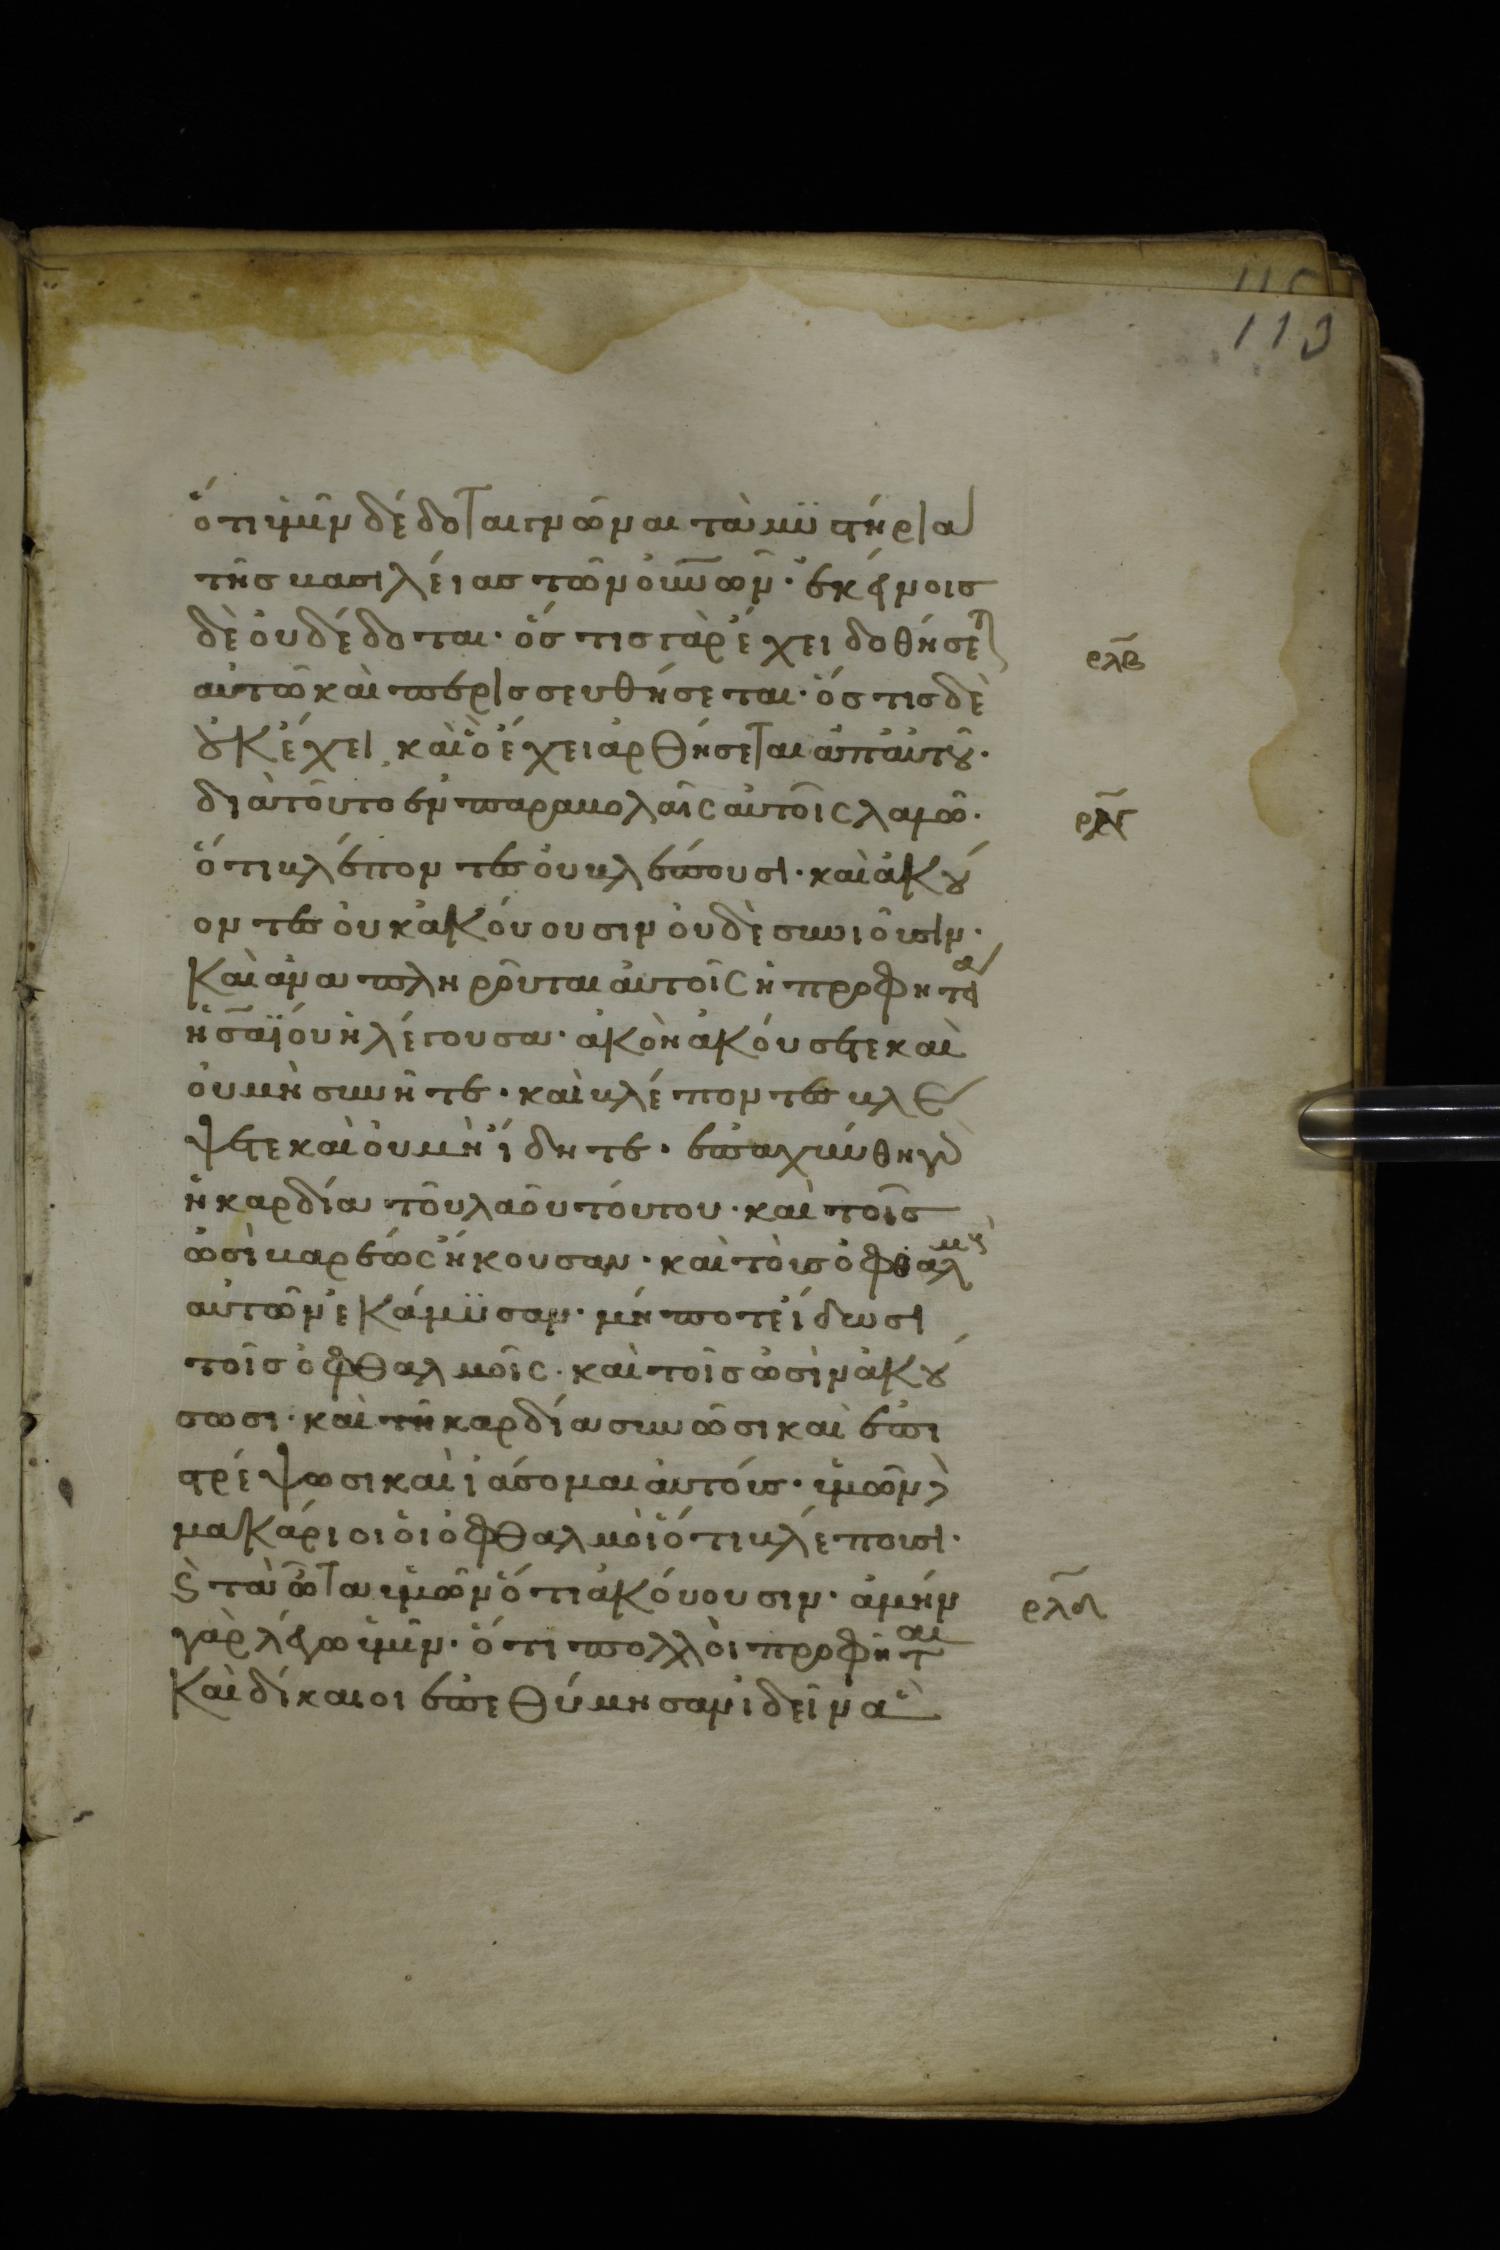 113
ὅτι ὑμῖν δέδοται γνῶναι τὰ μϋστήρια
τῆς βασιλείας τῶν οὐνῶν· ἐκείνοις
δὲ οὐ δέδοται· ὅστις γὰρ ἔχει δοθήσετ
αὐτῶ καὶ περισσευθήσεται· ὅστις δὲ
οὐκ ἔχει, καὶ ὃ ἔχει ἀρθήσεται ἀπ αὐτοῦ·
διατοῦτο ἐν παραβολαῖς αὐτοῖς λαλῶ·
ὅτι βλέποντες οὐ βλέπουσι· καὶ ἀκού
οντες οὐκ ἀκούουσιν οὐδὲ συνιοῦσιν·
καὶ ἀναπληροῦται αὐτοῖς ἡ προφητεία
ἡσαΐου ἡ λέγουσα· ἀκοὴ ἀκούσετε καὶ
οὐ μὴ συνῆτε· καὶ βλέποντες βλέ
ψετε καὶ οὐ μὴ ἴδητε· ἐπαχύνθη γὰρ
ἡ καρδία τοῦ λαοῦ τούτου· καὶ τοῖς
ὠσὶ βαρέως ἤκουσαν· καὶ τοὺς ὀφθαλμοὺς
αὐτῶν ἐκάμϋσαν· μήποτε ἴδωσι
τοῖς ὀφθαλμοῖς· καὶ τοῖς ὠσὶν ἀκού
σωσι· καὶ τῆ καρδία συνῶσι καὶ ἐπι
στρέψωσι καὶ ἰάσομαι αὐτούς· ὑμῶν δὲ
μακάριοι οἱ ὀφθαλμοὶ ὅτι βλέπουσι·
καὶ τὰ ὦτα ὑμῶν ὅτι ἀκούουσιν· ἀμὴν
γὰρ λέγω ὑμῖν· ὅτι πολλοὶ προφῆται
καὶ δίκαιοι ἐπεθύμησαν ἰδεῖν ἃ
ρλβ
ρλγ
ρλδ